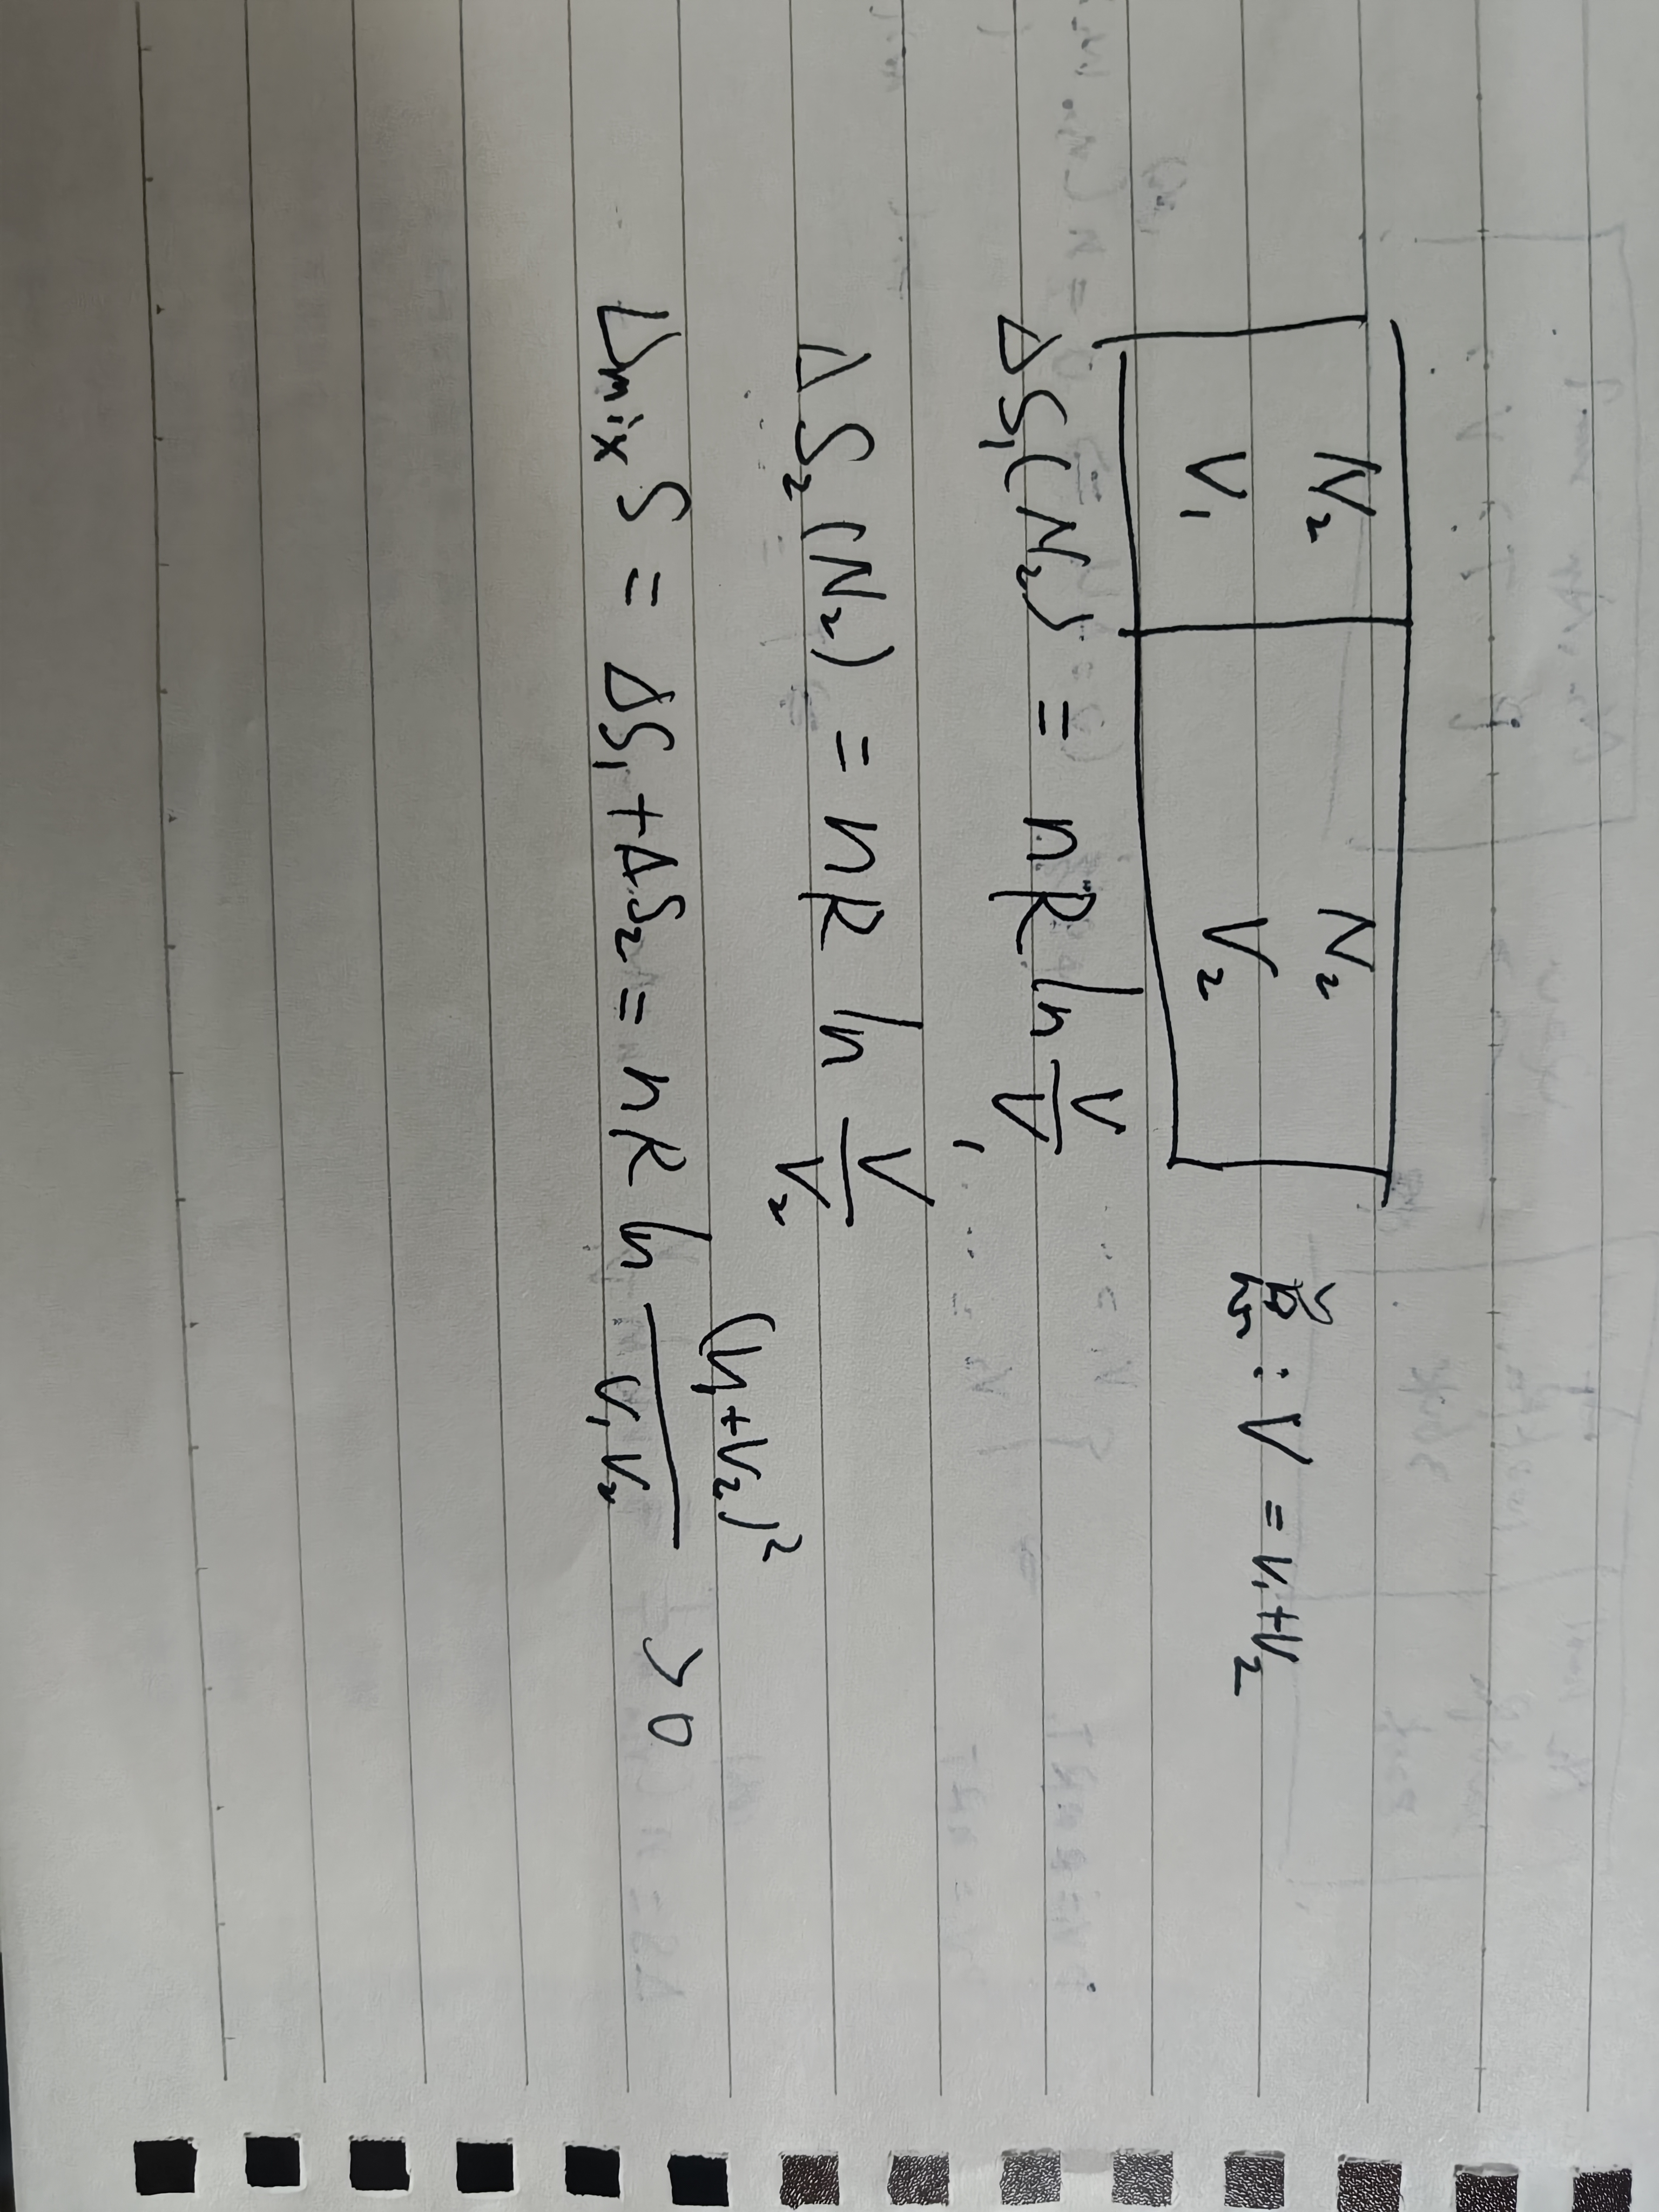 N₂ N₂
V₁ V₂
总 : V = V₁+V₂
ΔS₁(N₂) = nR ln V/V₁
ΔS₂(N₂) = nR ln V/V₂
Δmix S = ΔS₁+ΔS₂ = nR ln (V₁+V₂)²/V₁V₂ > 0